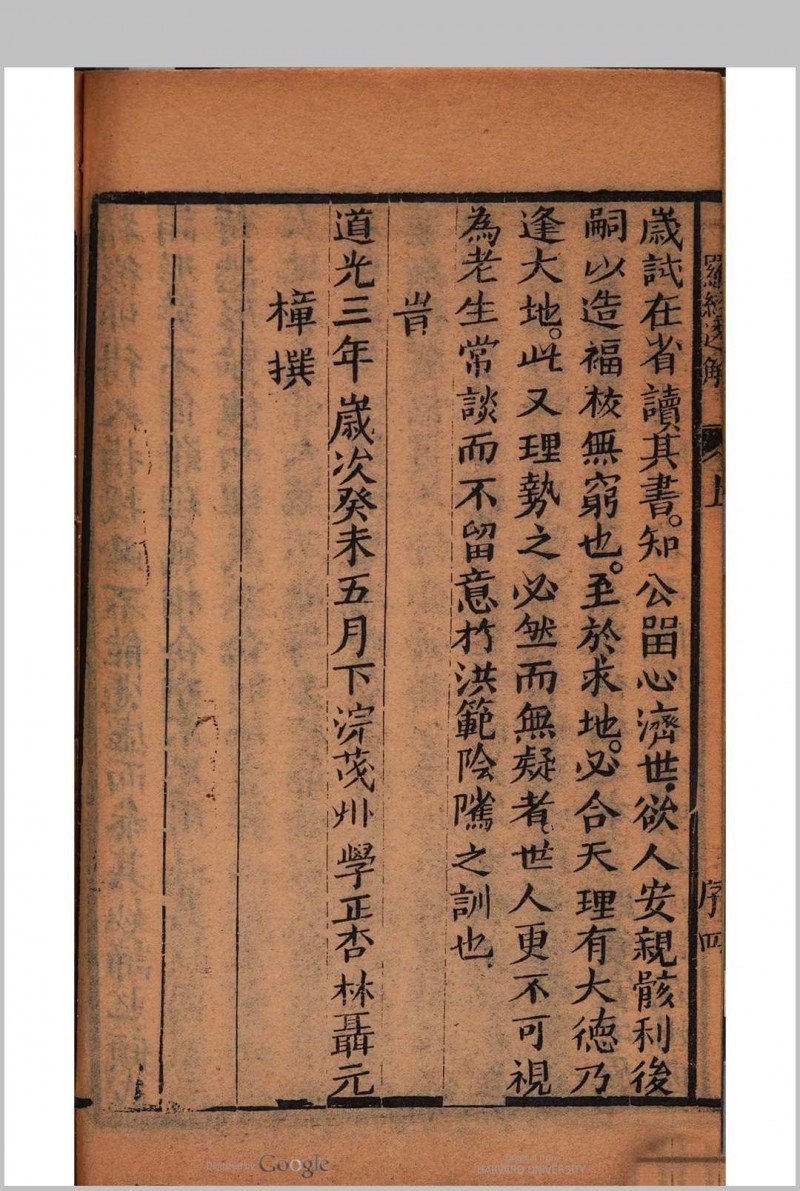 羅經透解 卷上 序 四
歲試在省讀其書。知公留心濟世,欲人安親骸利後
嗣以造福於無窮也。至於求地。必合天理有大德乃
逢大地。此又理勢之必然而無疑者,世人更不可視
為老生常談而不留意於洪範陰隲之訓也,
旹
道光三年歲次癸未五月下浣茂州學正杏林聶元
樟撰
Digitized by Google
HARVARD UNIVERSITY